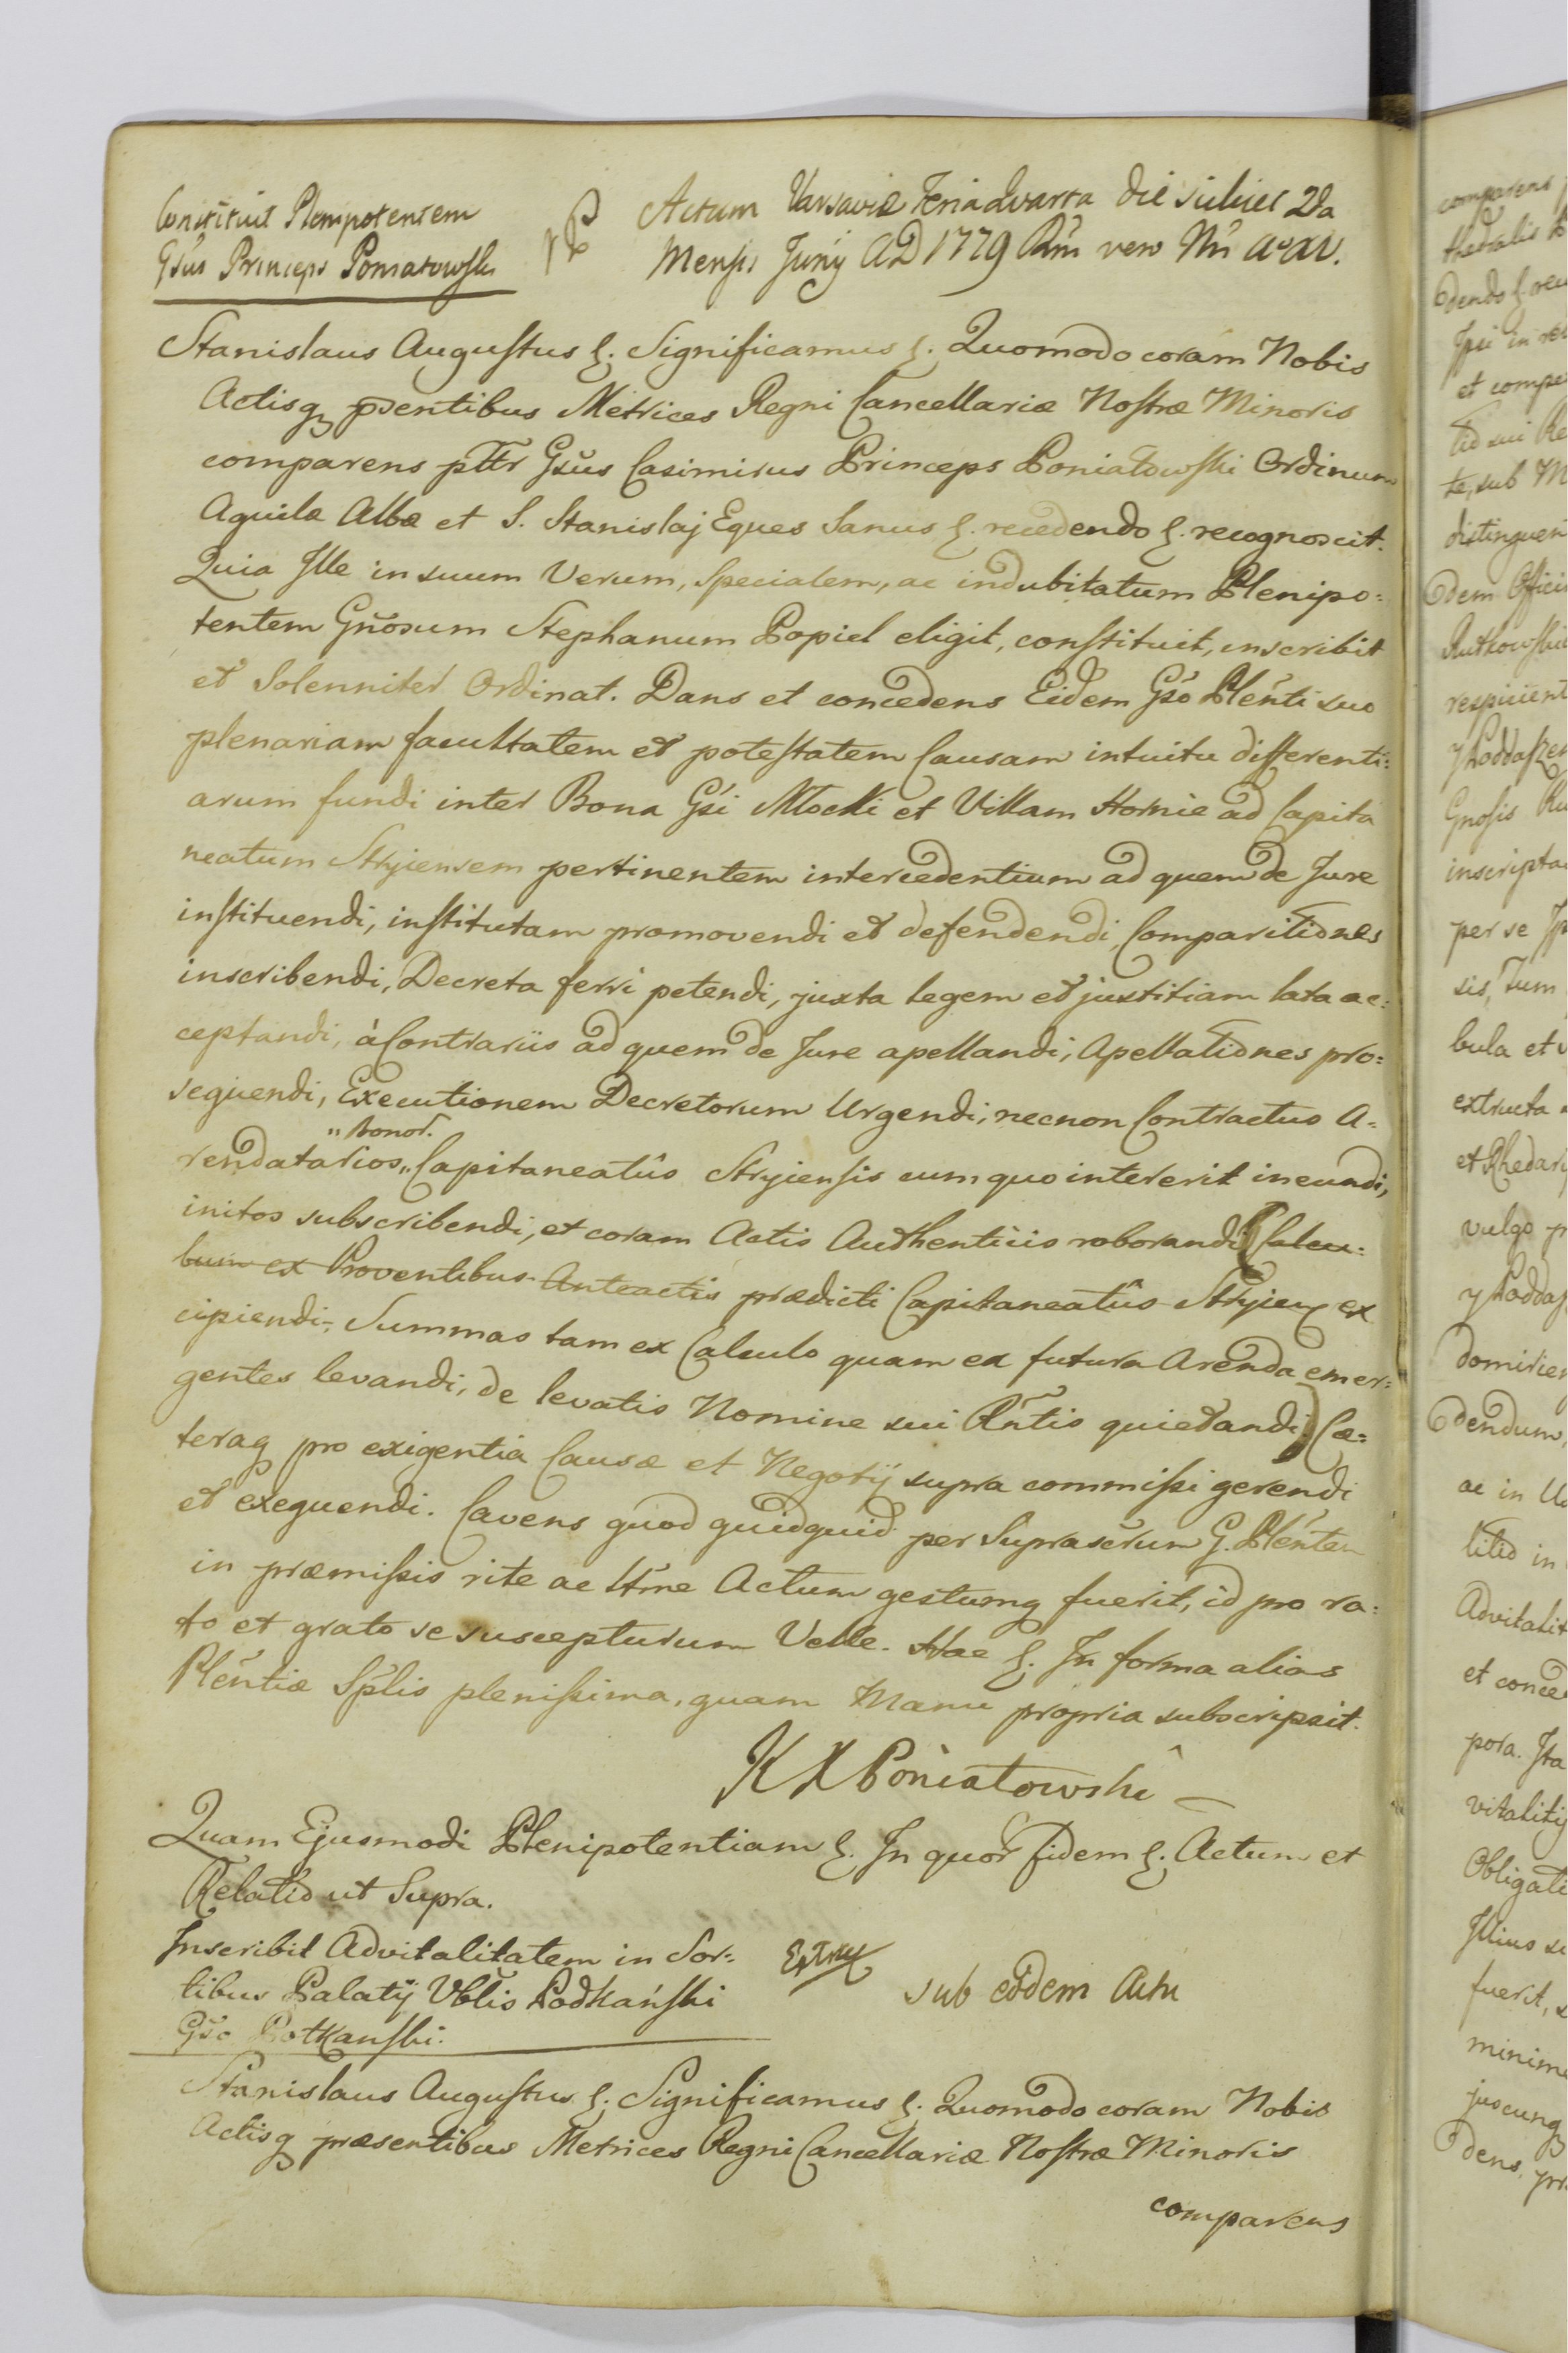 Constituit Plenipotentem
Gsus Princeps Poniatowski
Actum Varsaviæ Feria Quarta die scilicet 2da
Mensis Junÿ AD 1779 Rñi vero Nri aō XV.
Stanislaus Augustus &. Significamus &. Quomodo coram Nobis
Actisq pñentibus Metrices Regni Cancellariæ Nostræ Minoris
comparens pltr Gsus Casimirus Princeps Poniatowski Ordinum
Aquilæ Albæ et S. Stanislaj Eques Sanus &. recedendo &. recognoscit.
Quia Ille in suum Verum, Specialem, ac indubitatum Plenipo=
tentem Gñosum Stephanum Popiel eligit, constituit, inscribit
et Solenniter Ordinat. Dans et concedens Eidem Gso Plenti suo
plenariam facultatem et potestatem Causam intuitu differenti=
arum fundi inter Bona Gsi Mlocki et Villam Hornie ad Capita
neatum Stryiensem pertinentem intercedentium ad quem de Jure
instituendi, institutam promovendi et defendendi, Comparitiones
inscribendi, Decreta ferri petendi, juxta legem et justitiam lata ac=
ceptandi, à Contrariis ad quem de Jure apellandi, Apellationes pro=
sequendi, Executionem Decretorum Urgendi, necnon Contractus A=
" Bonor.
rendatarios " Capitaneatûs Stryiensis cum quo intererit ineundi,
initos subscribendi, et coram Actis Authenticis roborandi (Calcu=
lum ex Proventibus Anteactis prædicti Capitaneatûs Stryien ex
cipiendi, Summas tam ex Calculo quam ex futura Arenda emer=
gentes levandi, de levatis Nomine sui Pñtis quietandi,) Cæ=
teraq pro exigentia Causæ et Negotÿ supra commissi gerendi
et exequendi. Cavens quod quidquid per Suprascrum G. Plenten
in præmissis rite ac ltme Actum gestumq fuerit, id pro ra=
to et grato se suscepturum Velle. Hac &. In forma alias
Plentiæ Splis plenissima, quam Manu propria subscripsit.
K X Poniatowski
Quam Ejusmodi Plenipotentiam &. In quor fidem &. Actum et
Relatio ut Supra.
Inscribit Advitalitatem in Sor=
tibus Palatÿ Vblis Podkański
Gso Potkanski.
Extra
sub eodem Actu
Stanislaus Augustus &. Significamus &. Quomodo coram Nobis
Actisq præsentibus Metrices Regni Cancellariæ Nostræ Minoris
comparens